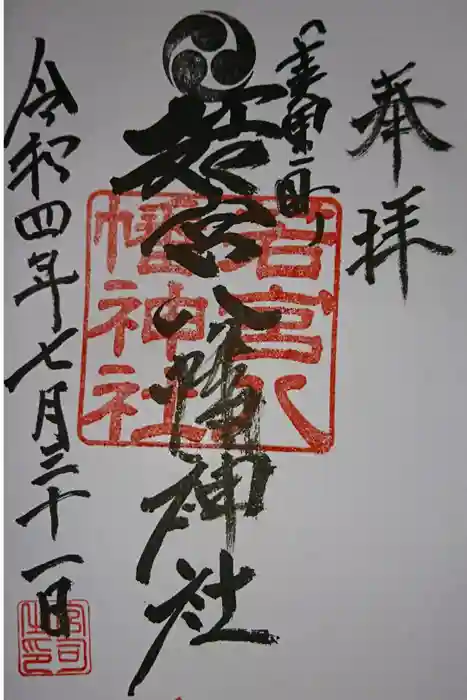 奉拝
若宮八幡神社
若宮八幡神社
令和四年七月三十一日
宮司之印